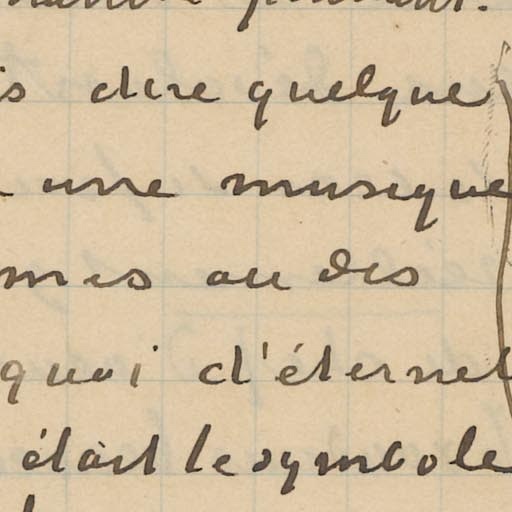 is dire quelque
une musique
mes ou des
quoi d'éternel
était le symbole